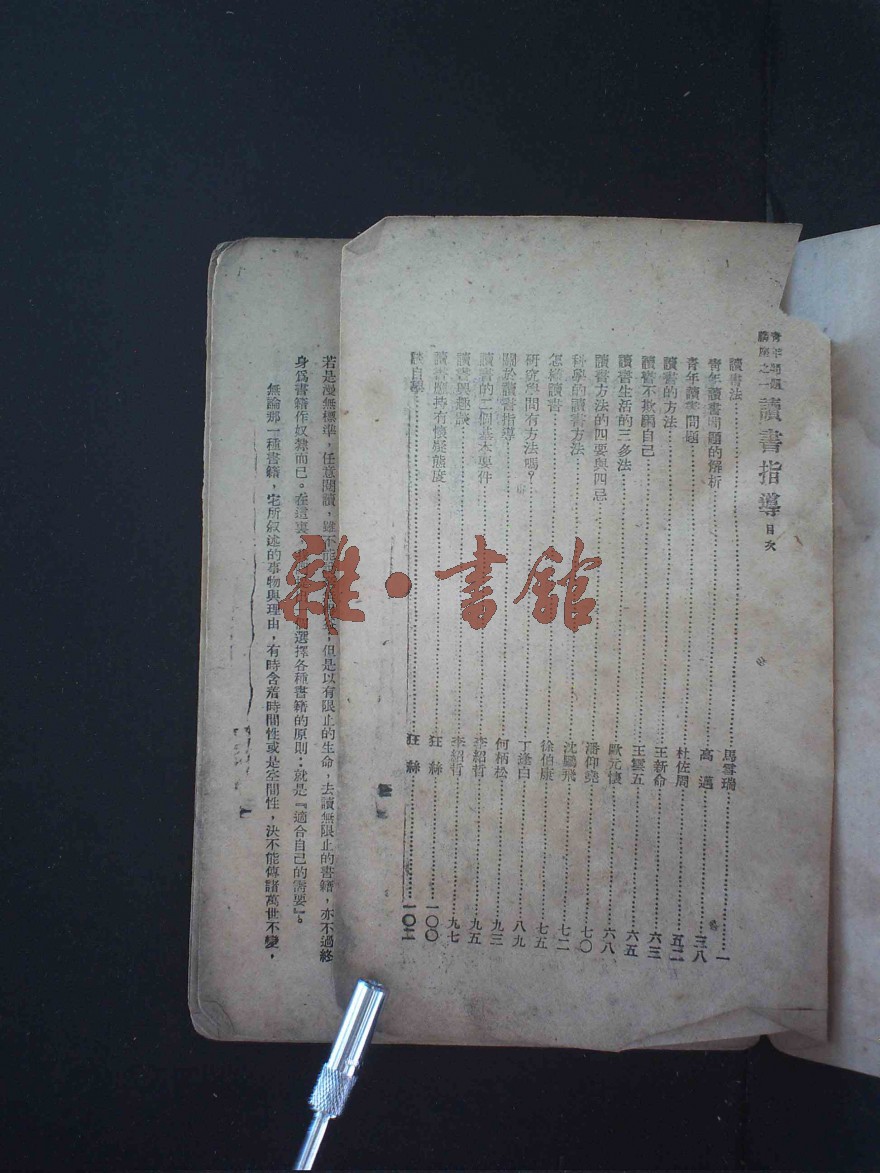 青年問題
講座之一
讀書指導 目次
讀書法 馬雪瑞 一
青年讀書問題的解析 高邁 三八
青年讀書問題 杜佐周 五二
讀書的方法 王新命 六三
讀書不欺騙自己 王雲五 六五
讀書生活的三多法 歐元懷 六八
讀書方法的四要與四忌 潘仰堯 七〇
科學的讀書方法 沈鵬飛 七二
怎樣讀書 徐伯康 七五
研究學問有方法嗎？ 丁逢白 八九
關於讀書指導 何柄松 九三
讀書的二個基本要件 李紹哲 九五
讀書興趣談 李紹哲 九七
讀書應持有懷疑態度 狂絲 一〇〇
談自學 狂絲 一〇二
若是漫無標準，任意閱讀，雖不能，但是以有限止的生命，去讀無限止的書籍，亦不過終
身爲書籍作奴隸而已。在這裏，選擇各種書籍的原則：就是『適合自己的需要』。
無論那一種書籍，它所叙述的事物與理由，有時含着時間性或是空間性，決不能傳諸萬世不變，
雜·書館